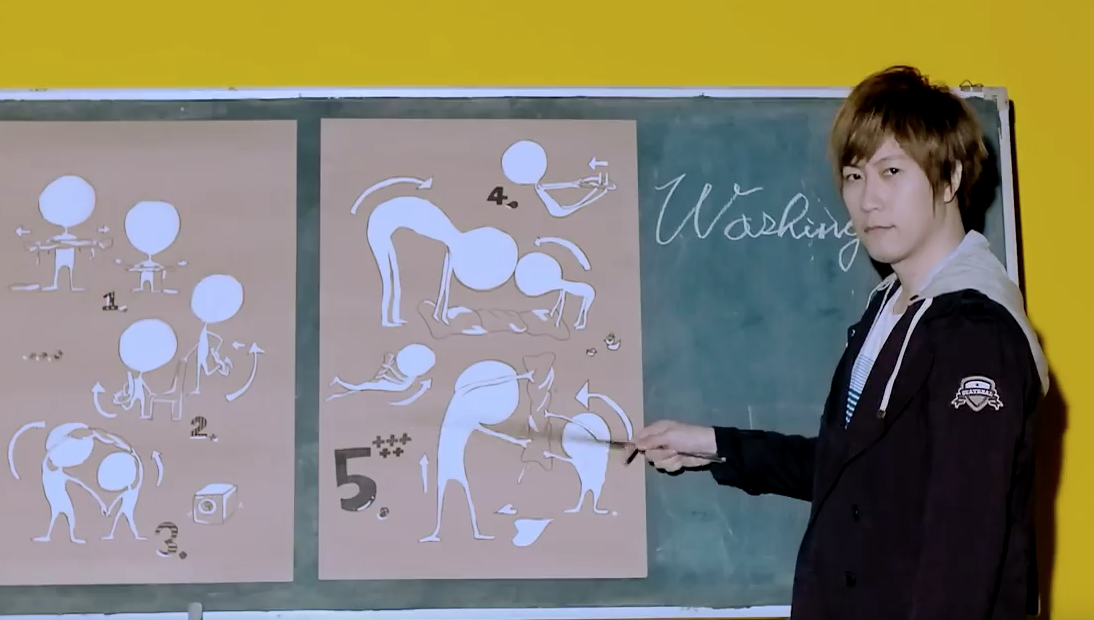 1.
2.
3.
4.
5.
Washing